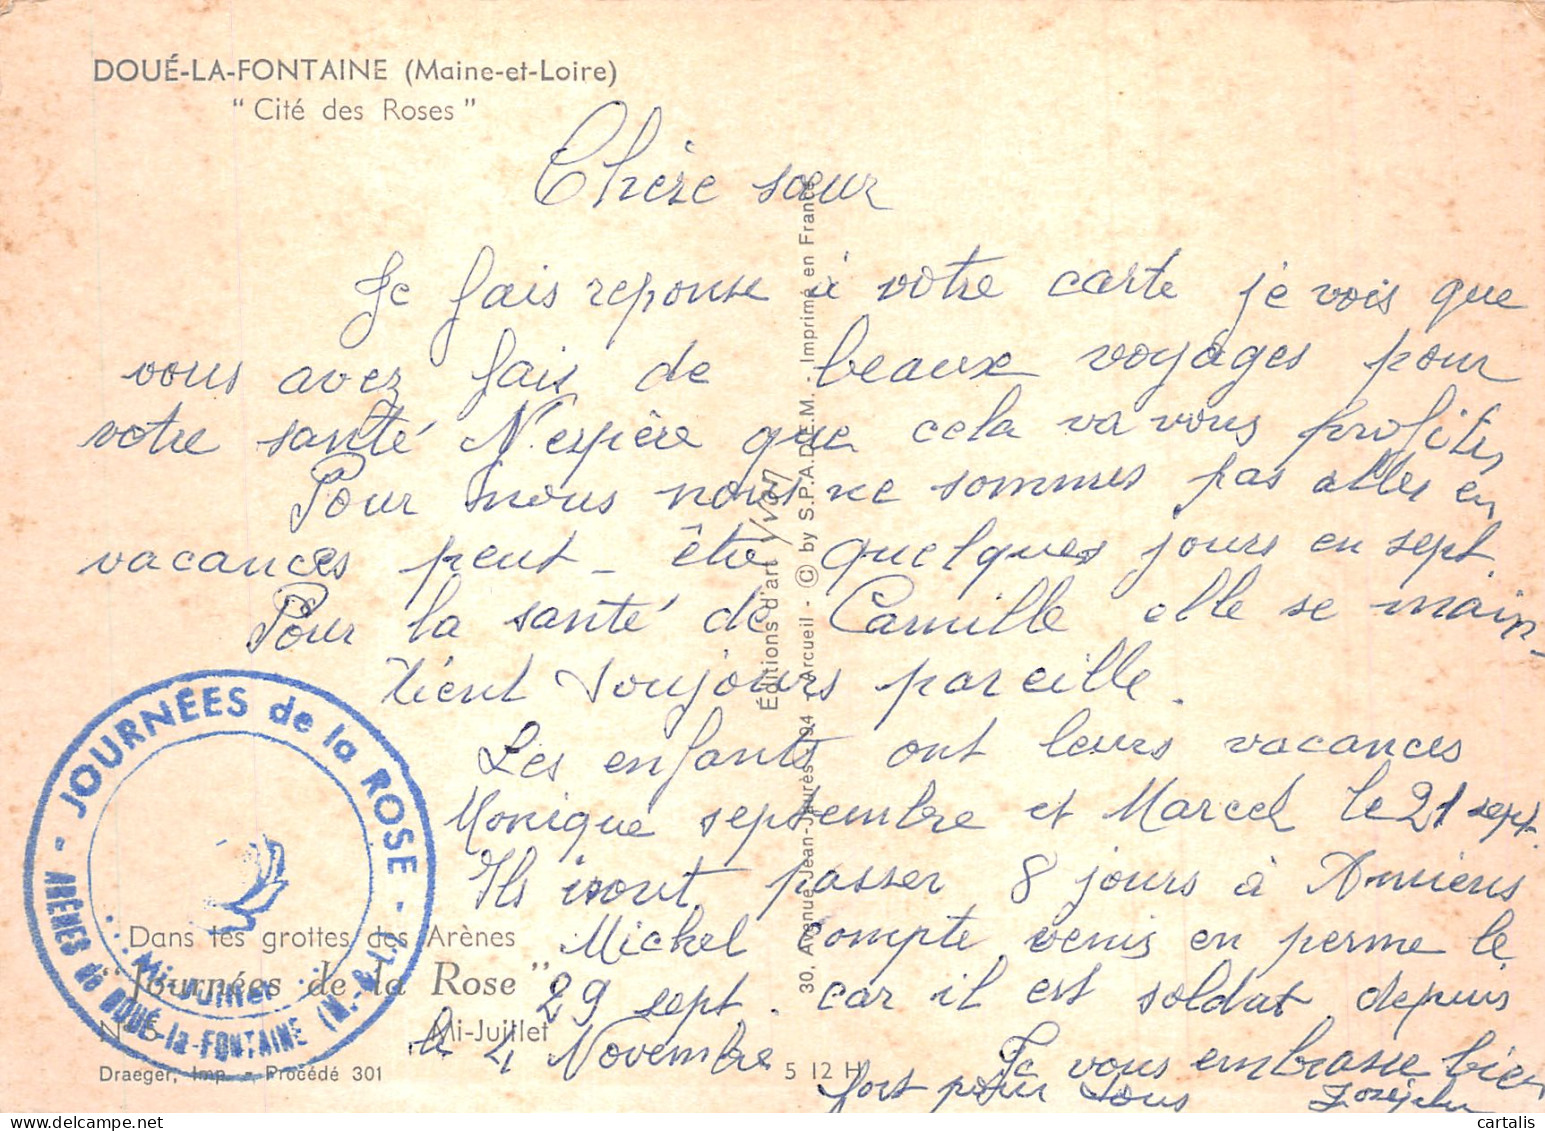 DOUÉ-LA-FONTAINE (Maine-et-Loire)
" Cité des Roses "
Chère sœur
Je fais reponse à votre carte je vois que
vous avez fais de beaux voyages pour
votre santé N'espère que cela va vous profiter
Pour nous nous ne sommes pas alles en
vacances peut-être quelques jours en sept.
Pour la santé de Camille elle se main-
tient toujours pareille.
Les enfants ont leurs vacances
Monique septembre et Marcel le 21 sept.
Ils iront passer 8 jours à Amiens
Michel compte venir en perme le
29 sept. car il est soldat depuis
le 4 Novembre Je vous embrasse bien
fort pour tous
JOURNÉES de la ROSE
ARÈNES de DOUÉ-la-FONTAINE (M.-&-L.)
Mi-Juillet
Dans les grottes des Arènes
"Journées de la Rose"
N° 5 Mi-Juillet
Draeger, Imp. - Procédé 301
5 12 H
Éditions d'art Yvon
30, Avenue Jean-Jaurès - 94 - Arcueil - © by S.P.A.D.E.M. - Imprimé en France
cartalis